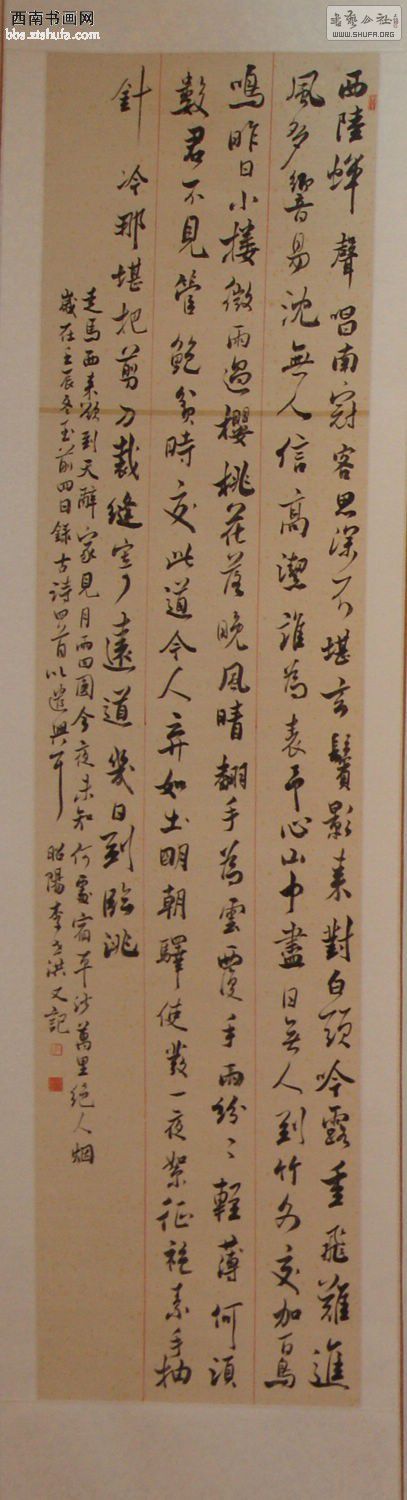 西南书画网
bbs.xtshufa.com
书艺公社
WWW.SHUFA.COM
西陸蟬聲唱南冠客思深不堪玄鬢影來對白頭吟露重飛難進
風多響易沈無人信高潔誰為表予心山中盡日無人到竹外交加百鳥
鳴昨日小樓微雨過櫻桃花落晚風晴翻手為雲覆手雨紛々輕薄何須
數君不見管鮑貧時交此道今人棄如土明朝驛使發一夜絮征袍素手抽
針冷那堪把剪刀裁縫寄遠道幾日到臨洮
走馬西來欲到天辭家見月兩回圓今夜未知何處宿平沙萬里絕人烟
歲在壬辰冬至前四日錄古詩四首以遣興耳 昭陽李洪又記